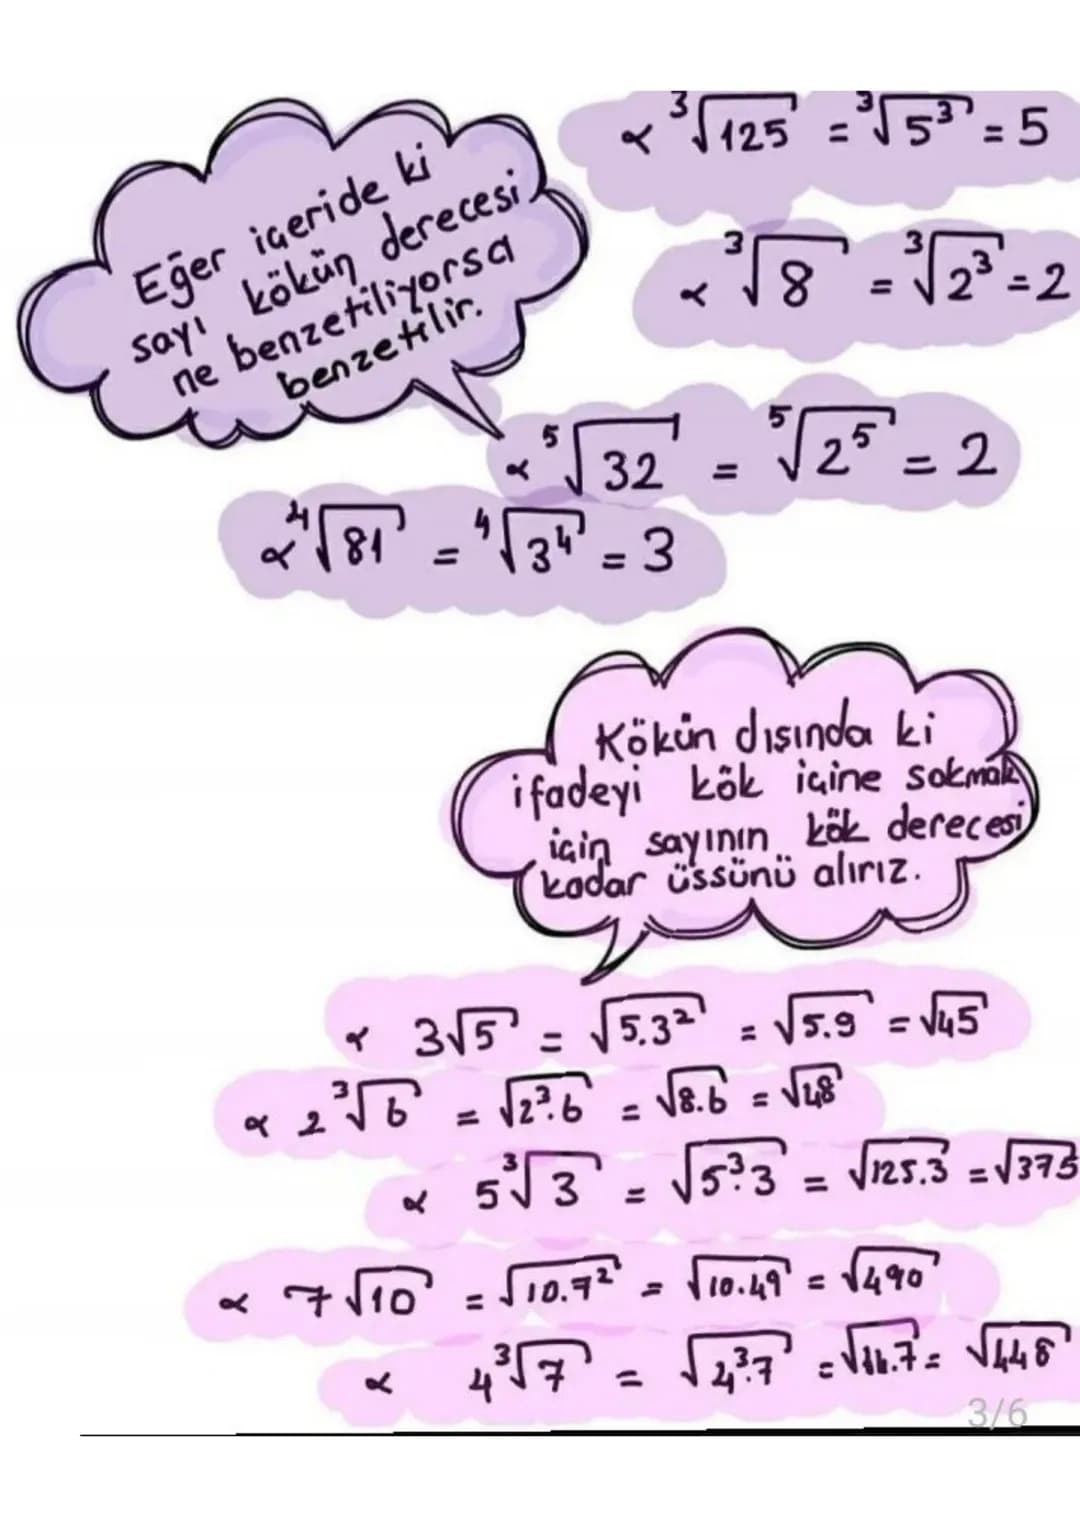 ∝ ³√125 = ³√5³ = 5
Eğer içeride ki
sayı kökün derecesi
ne benzetiliyorsa
benzetilir.
∝ ³√8 = ³√2³ = 2
∝ ⁵√32 = ⁵√2⁵ = 2
∝ ⁴√81 = ⁴√3⁴ = 3
Kökün dışında ki
ifadeyi kök içine sokmak
için sayının kök derecesi
kadar üssünü alırız.
∝ 3√5 = √5.3² = √5.9 = √45
∝ 2³√6 = √2³.6 = √8.6 = √48
∝ 5³√3 = √5³.3 = √125.3 = √375
∝ 7√10 = √10.7² = √10.49 = √490
∝ 4³√7 = √4³.7 = √64.7 = √448
3/6